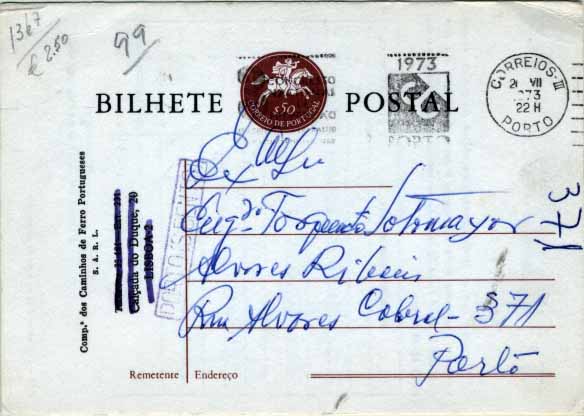 1367
£ 2.50
99
1973
CORREIOS-III
VII
973
22H
PORTO
BILHETE POSTAL
$50
CORREIO DE PORTUGAL
Comp.ª dos Caminhos de Ferro Portugueses
S. A. R. L.
Calçada do Duque, 20
LISBOA-2
Sotomayor
Alvares Ribeiro
Rua Alvares Cabral - 371
Porto
371
Remetente Endereço